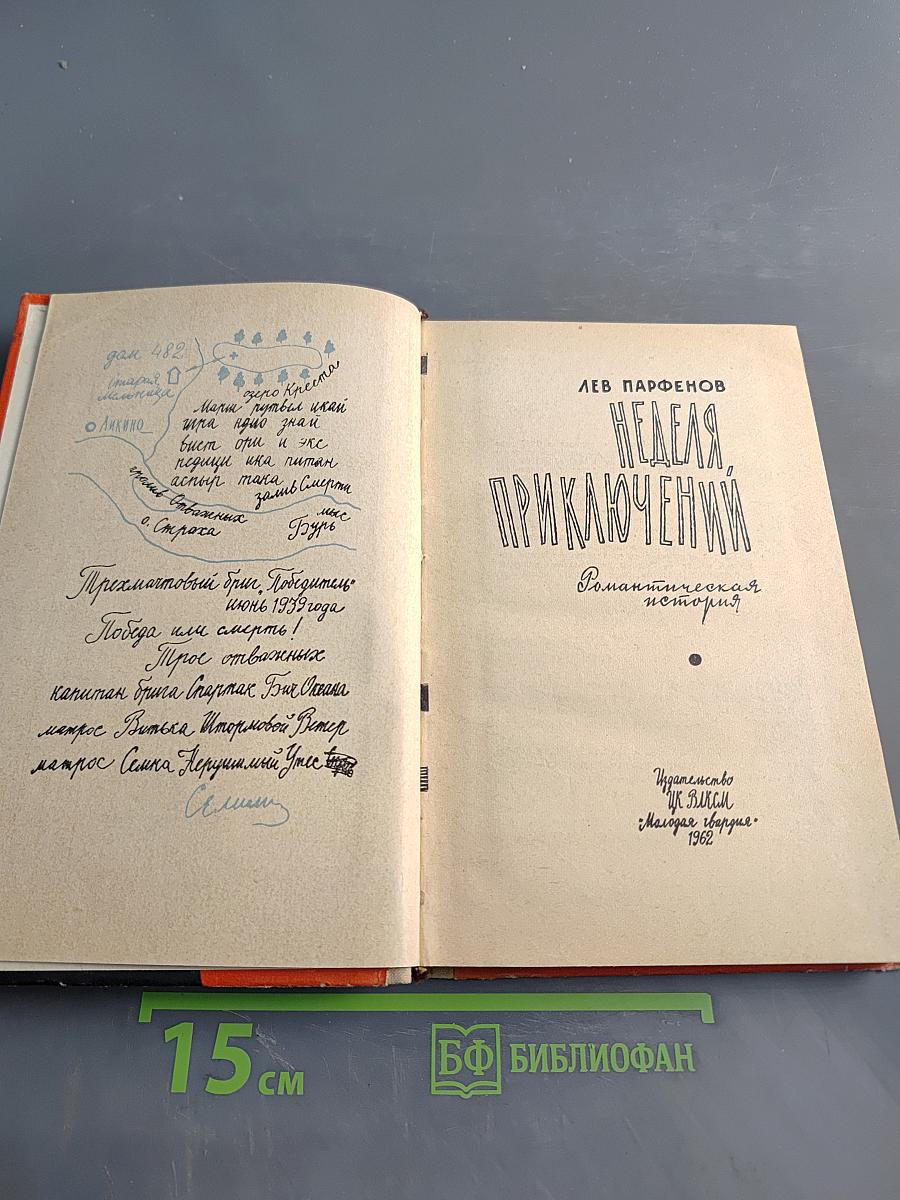 дом 482
старая
мельница
Ликино
озеро Креста
Марш рутвел икай
игра идио знай
вист ори и экс
педици ика питан
аспыр така
залив Смерти
пролив Отважных
о. Страха
мыс
Бурь
Трехмачтовый бриг „Победитель“
июнь 1939 года
Победа или смерть!
Трое отважных
капитан брига Спартак Бич Океана
матрос Витька Штормовой Ветер
матрос Семка Нерушимый Утес
ЛЕВ ПАРФЕНОВ
НЕДЕЛЯ
ПРИКЛЮЧЕНИЙ
Романтическая
история
Издательство
ЦК ВЛКСМ
„Молодая гвардия“
1962
15 см
БФ БИБЛИОФАН